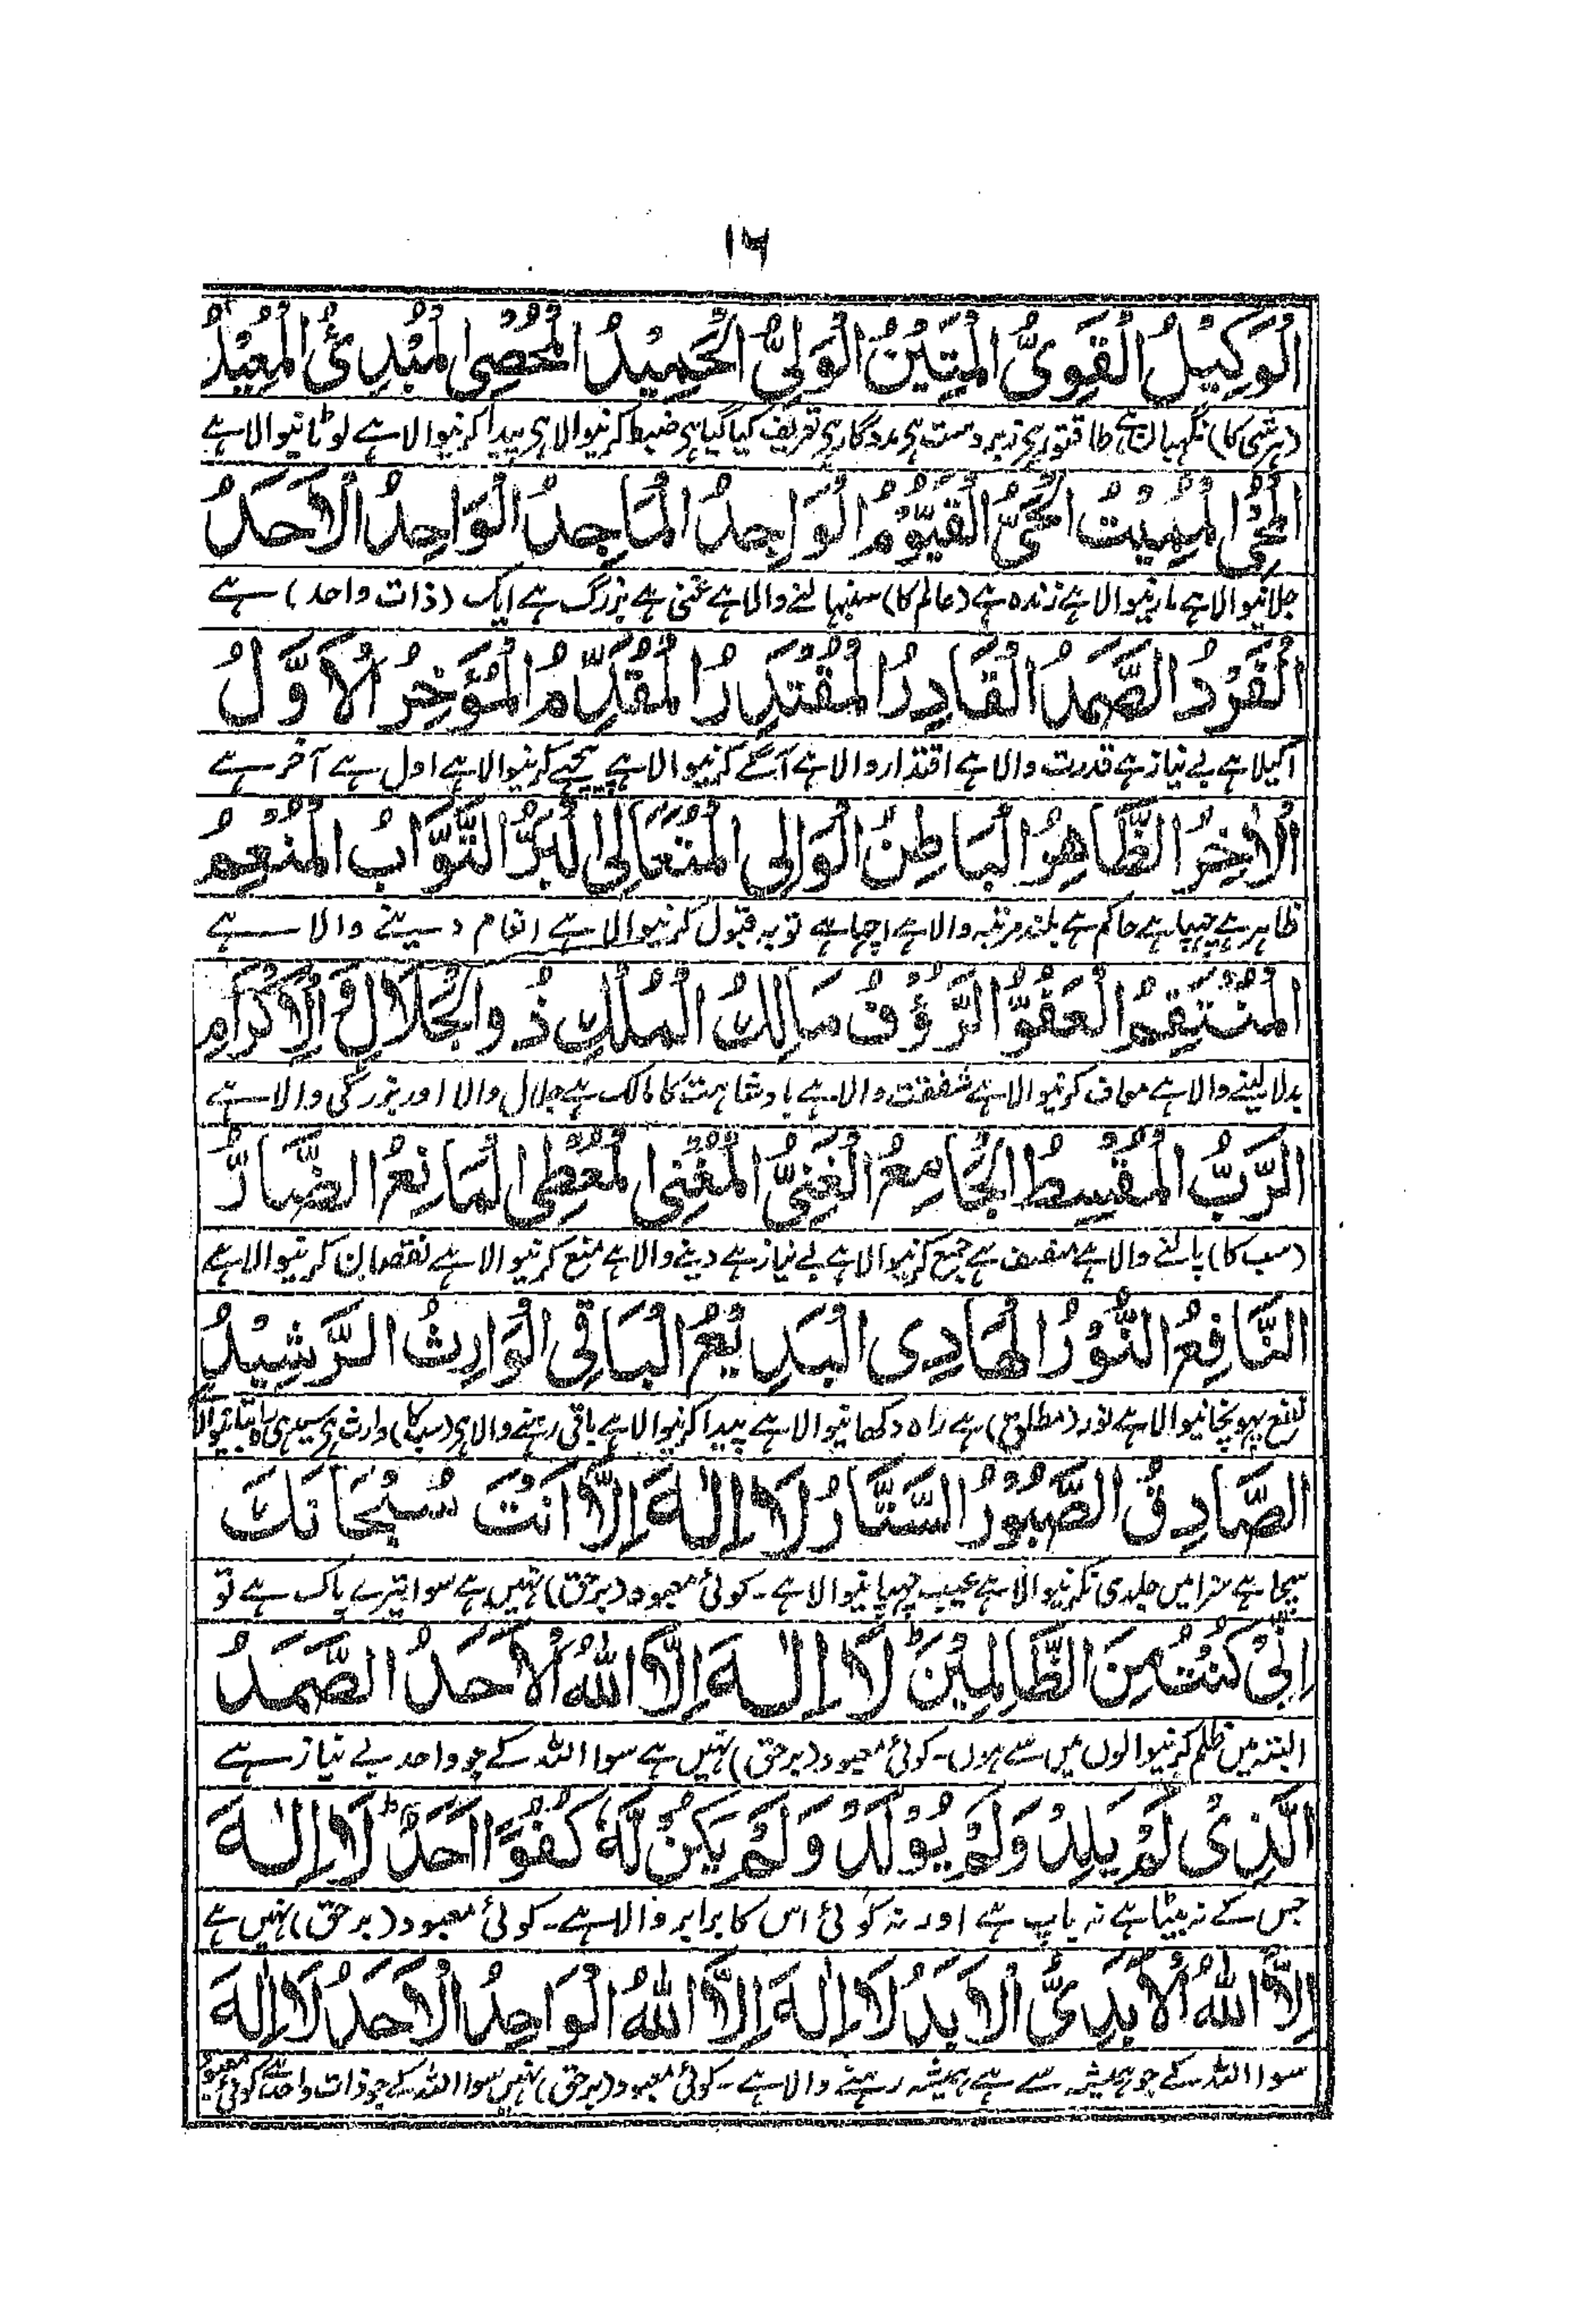 ۱۶
اَلْوَكِيْلُ الْقَوِيُّ الْمَتِيْنُ الْوَلِيُّ الْحَمِيْدُ الْمُحْصِى الْمُبْدِئُ الْمُعِيْدُ
(ہر شی کا) نگہبان ہے طاقتور ہی زبردست ہی مددگار ہی تعریف کیا گیا ہی ضبط کرنیوالا ہی پیدا کرنیوالا ہے لوٹانیوالا ہے
الْمُحْيِ الْمُمِيْتُ الْحَيُّ الْقَيُّوْمُ الْوَاجِدُ الْمَاجِدُ الْوَاحِدُ الْاَحَدُ
جلانیوالا ہے مارنیوالا ہے زندہ ہے (عالم کا) سنبھالنے والا ہے غنی ہے بزرگ ہے ایک (ذات واحد) ہے
اَلْفَرْدُ الصَّمَدُ الْقَادِرُ الْمُقْتَدِرُ الْمُقَدِّمُ الْمُؤَخِّرُ الْاَوَّلُ
اکیلا ہے بے نیاز ہے قدرت والا ہے اقتدار والا ہے آگے کرنیوالا ہے پیچھے کرنیوالا ہے اول ہے آخر ہے
اَلْاٰخِرُ الظَّاهِرُ الْبَاطِنُ الْوَالِى الْمُتَعَالِى الْبَرُّ التَّوَّابُ الْمُنْعِمُ
ظاہر ہے چھپا ہے حاکم ہے بلند مرتبہ والا ہے اچھا ہے توبہ قبول کرنیوالا ہے انعام دینے والا ہے
الْمُنْتَقِمُ الْعَفُوُّ الرَّؤُفُ مَالِكُ الْمُلْكِ ذُو الْجَلَالِ وَالْاِكْرَامِ
بدلا لینے والا ہے معاف کرنیوالا ہے شفقت والا ہے بادشاہت کا مالک ہے جلال والا اور بزرگی والا ہے
الرَّبُّ الْمُقْسِطُ الْجَامِعُ الْغَنِيُّ الْمُغْنِى الْمُعْطِى الْمَانِعُ الضَّارُّ
(سب کا) پالنے والا ہے منصف ہے جمع کرنیوالا ہے بے نیاز ہے دینے والا ہے منع کرنیوالا ہے نقصان کرنیوالا ہے
النَّافِعُ النُّوْرُ الْهَادِى الْبَدِيْعُ الْبَاقِى الْوَارِثُ الرَّشِيْدُ
نفع پہونچانیوالا ہے نور (مطلق) ہے راہ دکھانیوالا ہے پیدا کرنیوالا ہے باقی رہنے والا ہی (سب کا) وارث ہی سیدھی راہ بتانیوالا
الصَّادِقُ الصَّبُوْرُ السَّتَّارُ لَا اِلٰهَ اِلَّا اَنْتَ سُبْحَانَكَ
سچا ہے سزا میں جلدی نکرنیوالا ہے عیب چھپانیوالا ہے۔ کوئی معبود (برحق) نہیں ہے سوا تیرے پاک ہے تو
اِنِّىْ كُنْتُ مِنَ الظَّالِمِيْنَ ؕ لَا اِلٰهَ اِلَّا اللّٰهُ الْاَحَدُ الصَّمَدُ
البتہ میں ظلم کرنیوالوں میں سے ہوں۔ کوئی معبود (برحق) نہیں ہے سوا اللہ کے جو واحد بے نیاز ہے
الَّذِىْ لَمْ يَلِدْ وَلَمْ يُوْلَدْ وَلَمْ يَكُنْ لَّهٗ كُفُوًا اَحَدٌ ؕ لَا اِلٰهَ
جس کے نہ بیٹا ہے نہ باپ ہے اور نہ کوئی اس کا برابر والا ہے۔ کوئی معبود (برحق) نہیں ہے
اِلَّا اللّٰهُ الْاَبَدِيُّ الْاَبَدُ لَا اِلٰهَ اِلَّا اللّٰهُ الْوَاحِدُ الْاَحَدُ لَا اِلٰهَ
سوا اللہ کے جو ہمیشہ سے ہے ہمیشہ رہنے والا ہے۔ کوئی معبود (برحق) نہیں سوا اللہ کے جو ذات واحد ہے کوئی معبود